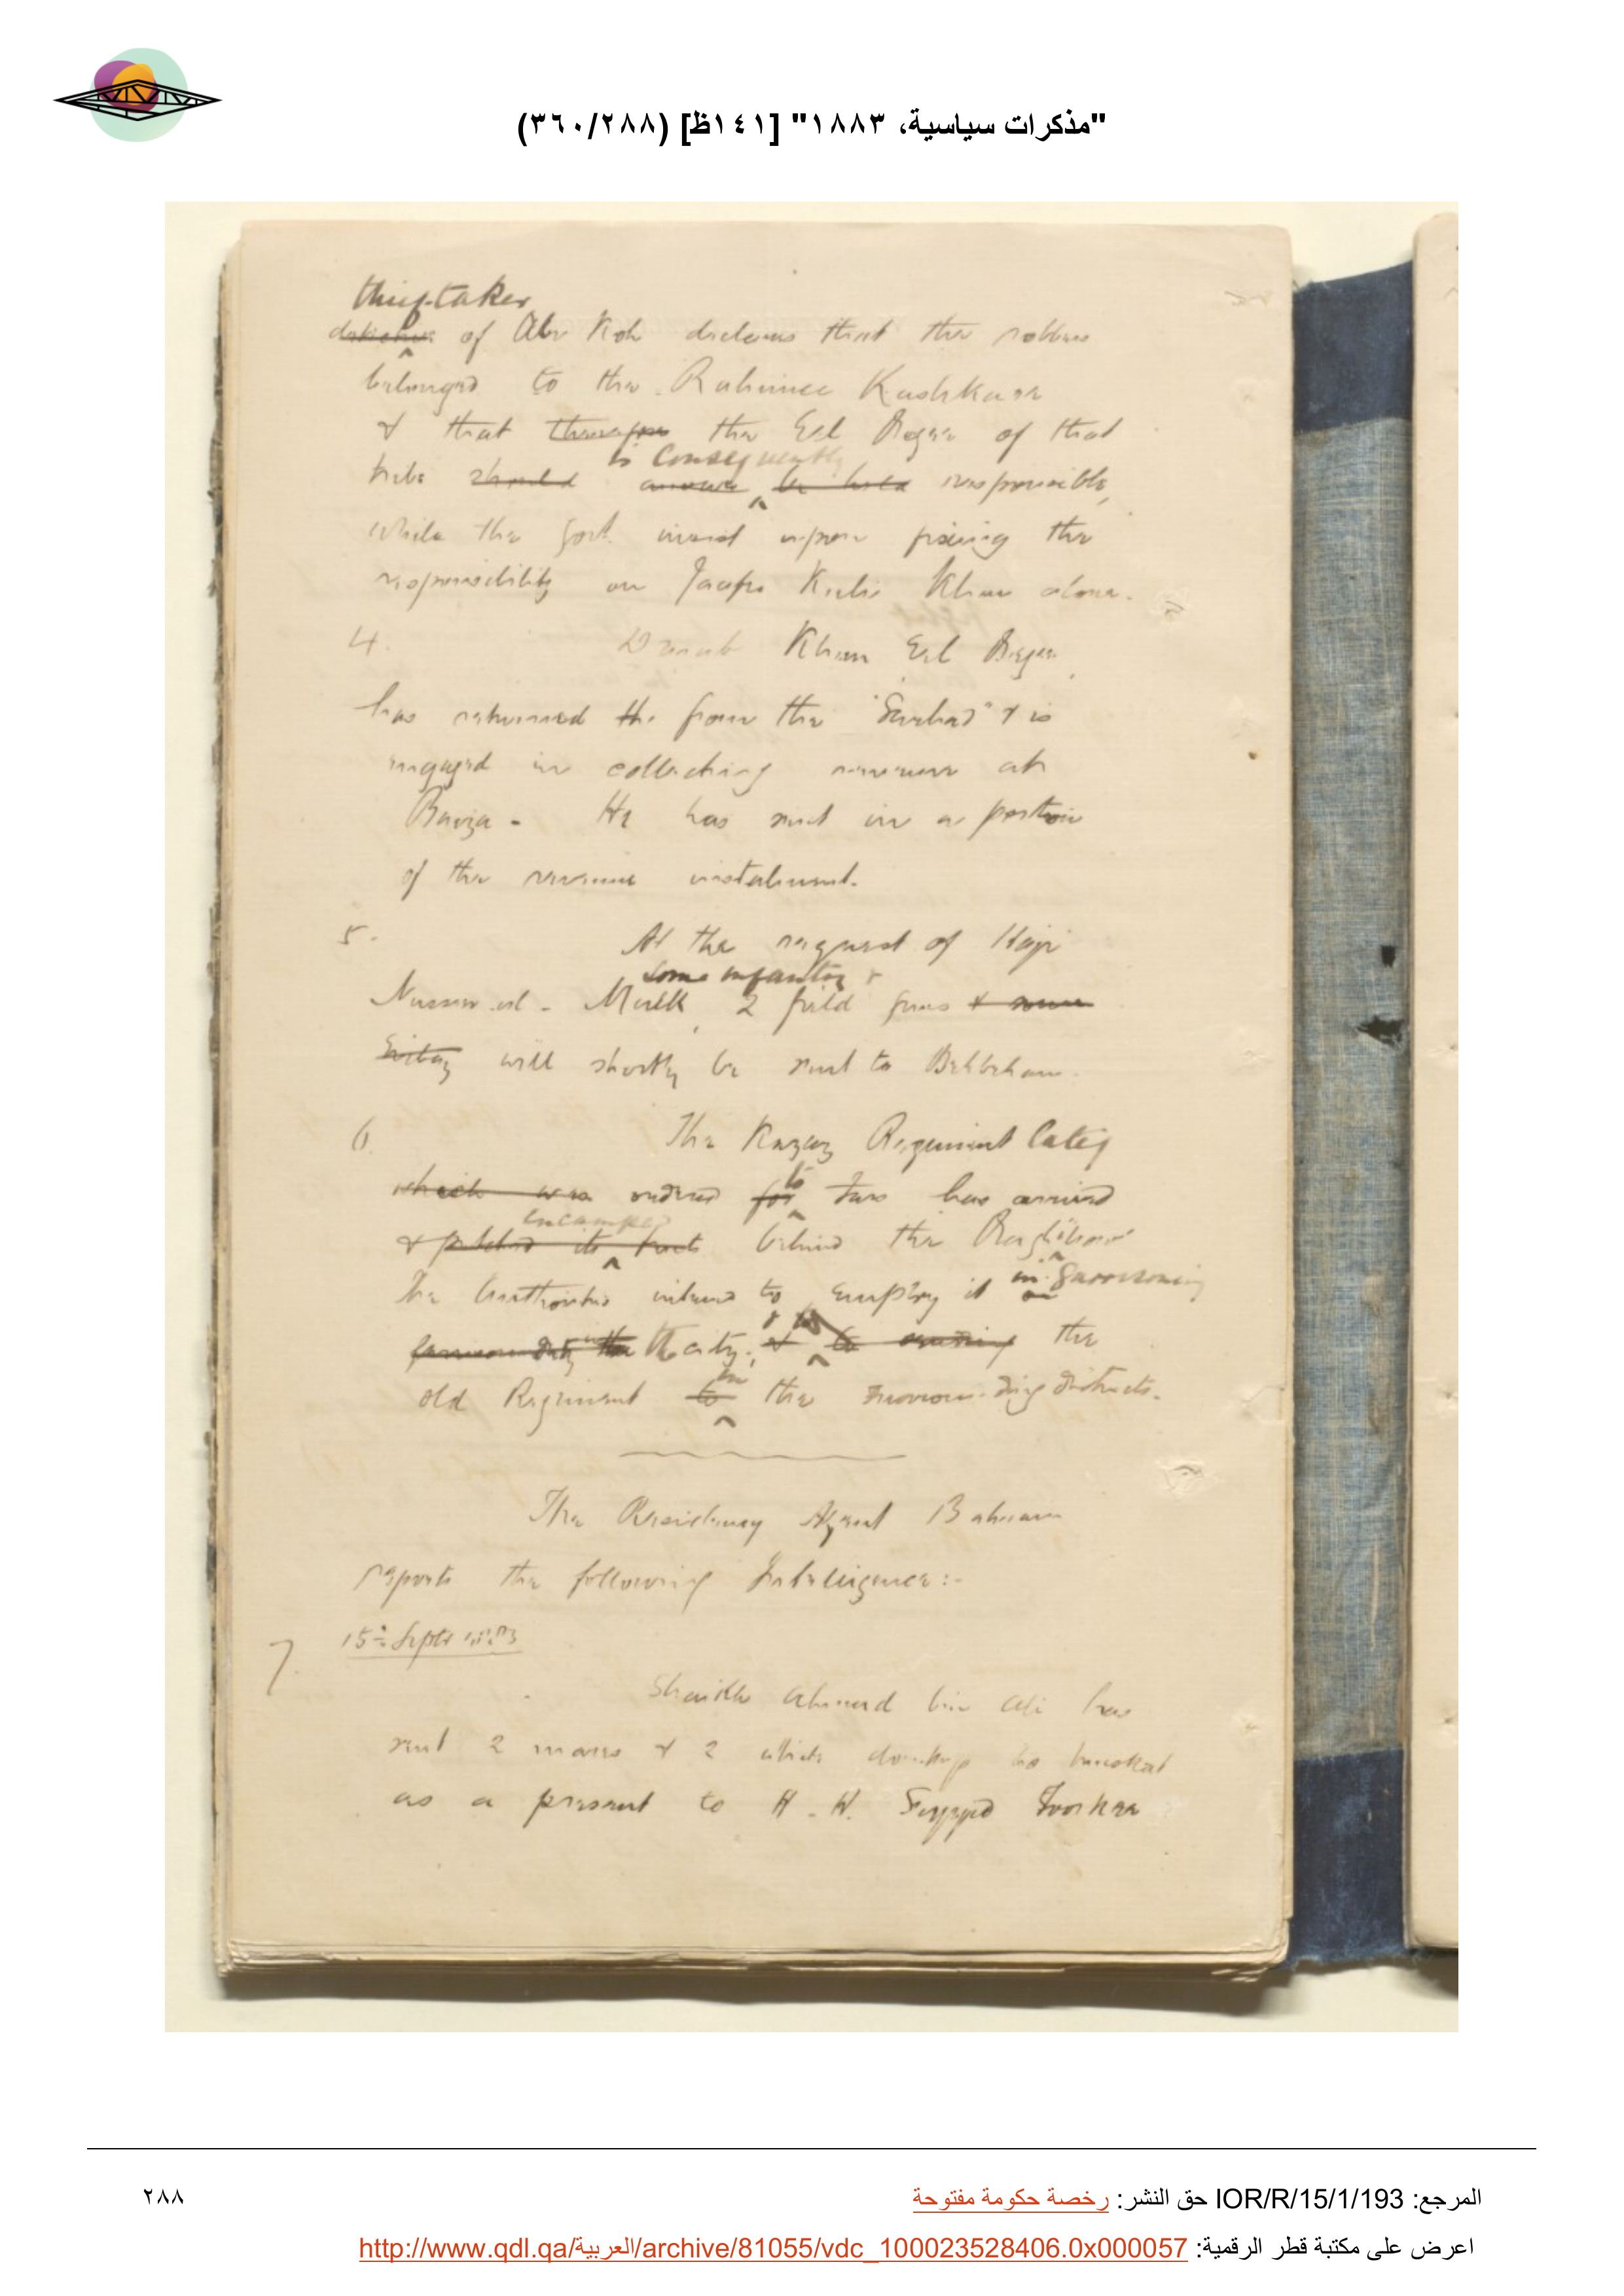 "مذكرات سياسية، ١٨٨٣" [١٤١ظ] (٣٦٠/٢٨٨)
thief-taker
detective of Abr Koh declares that the robbers
belonged to the Rahimee Kashkare
& that therefore the Eel Begee of that
is consequently
tribe should answer be held responsible,
while the Govt. insist upon fixing the
responsibility on Jaafer Kuli Khan alone.
4. Darab Khan Eel Begee,
has returned the from the "Sarhad" & is
engaged in collecting revenue at
Baiza - He has sent in a portion
of the revenue instalment.
5. At the request of Haji
some infantry &
Nusser-ul-Mulk, 2 field guns & some
will shortly be sent to Behbehan.
6. The Kazaz Regiment lately
to
which was ordered for Fars has arrived
encamped
& pitched its tents behind the Bagh
in garrisoning
The authorities intend to employ it on
garrison duty in the the city; & to sending the
in
old Regiment to the surrounding districts.
The Residency Agent Bahrain
reports the following Intelligence:-
7. 15th Septr 1883
Shaikh Ahmed bin Ali has
sent 2 mares & 2 white donkeys to Muscat
as a present to H. H. Seyyed Toorkee
المرجع: IOR/R/15/1/193 حق النشر: رخصة حكومة مفتوحة
٢٨٨
اعرض على مكتبة قطر الرقمية: http://www.qdl.qa/العربية/archive/81055/vdc_100023528406.0x000057